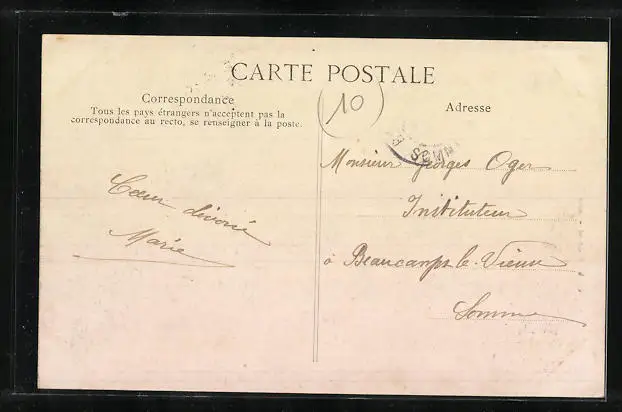 CARTE POSTALE
Correspondance
Tous les pays étrangers n'acceptent pas la
correspondance au recto, se renseigner à la poste.
Adresse
10
SOMME
Monsieur Georges Oger
Instituteur
à Beaucamps le-Vieux
Somme
Cœur
Marie